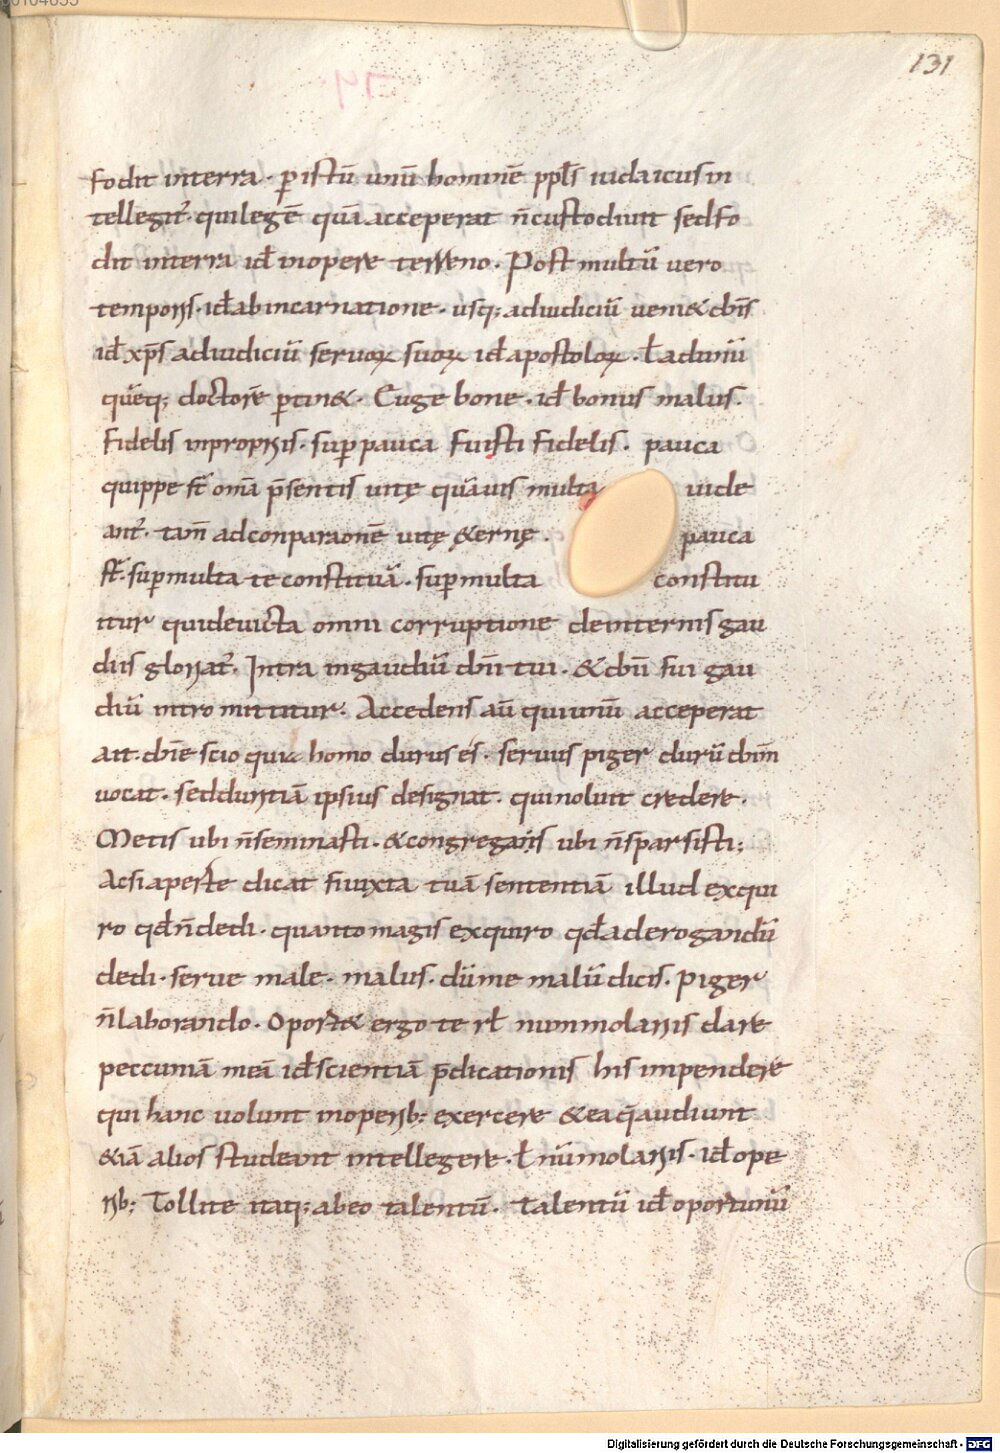 131
fodit interra. p̱ istū unū hominē ppl̄s iudaicus in
tellegit̄. qui legē quā acceperat n̄ custodiuit sed fo
dit interra id̄ inopere terreno. Post multū vero
temporis. id̄ ab incarnatione. usq; adiudiciū ueni& dn̄s
id̄ xp̄s adiudiciū seruoꝝ suoꝝ id̄ apostoloꝝ. ł adunū
quēq; doctorē ꝑtin&. Euge bone. id̄ bonus malus.
fidelis inpropriis. suꝑ pauca fuisti fidelis. pauca
quippe st̄ om̄a p̄sentis uitę quāuis multa uide
ant̄. tam̄ adconparaonē uitę &ernę. pauca
st̄. suꝑ multa te constituā. suꝑ multa constitu
itur qui deuicta omni corruptione deinternis gau
diis gloriat̄. Intra ingaudiū dn̄i tui. & dūm fui gau
diū intromittitur. Accedens aū qui unū acceperat
ait. dn̄e scio quia homo durus es. seruus piger durū dn̄m
uocat. sed duritiā ipsius designat. qui nolunt credere.
Metis ubi n̄ seminasti. & congregans ubi n̄ sparsisti;
Acsi aperte dicat si iuxta tuā sententiā illud exqui
ro qd̄ n̄ dedi. quanto magis exquiro qd̄ aderogandū
dedi. serue male. malus. dū me malū dicis. piger
n̄ laborando. Oport& ergo te rł nummolariis dare
peccuniā meā id̄ scientiā p̄dicationis his impendere
qui hanc uolunt inoperib; exercere & ea q̄ audiunt
&iā alios studeant intellegere. ł nūmolariis. id̄ ope
rib; Tollite itaq; abeo talentū. Talentū id̄ oportunū
Digitalisierung gefördert durch die Deutsche Forschungsgemeinschaft - DFG